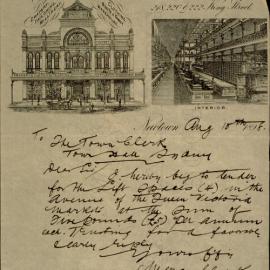 218.220 & 222 King Street
INTERIOR.
Newtown Aug 18th
To The Town Clerk
Town Hall Sydney
Dear Sir
I hereby beg to tender
for the Left Spaces (4) in the
Avenue of the Queen Victoria
Markets at the Sum of
Five pounds (£5) per annum
each. Trusting for a favorable
early reply
Yours